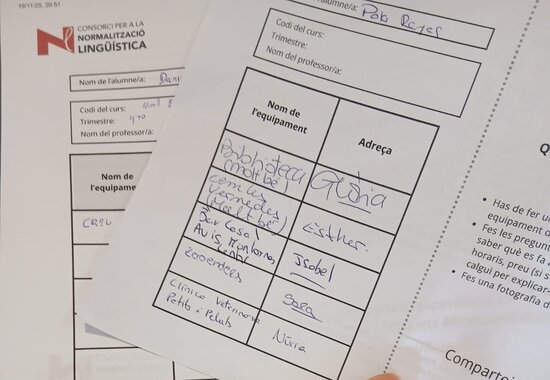 19/11/25, 20:51
CONSORCI PER A LA
NORMALITZACIÓ
LINGÜÍSTICA
Nom de l'alumne/a:
Codi del curs:
Trimestre:
Nom del professor/a:
Nom de
l'equipame
'alumne/a: Pab Reyes
Codi del curs:
Trimestre:
Nom del professor/a:
Nom de
l'equipament
Adreça
Biblioteca
(molt bé)
Glòria
Vermedes
(Molt bé)
Esther.
Bar Casa
Avis, Montorno,
Isabel
Zooentecs
Sara
Clínica Veterinària
Petits i Peluts
Núria
Q
• Has de fer un
equipament d
• Fes les pregunt
saber què es fa a
horaris, preu (si s
calgui per explicar-
• Fes una fotografia d
Comparteix